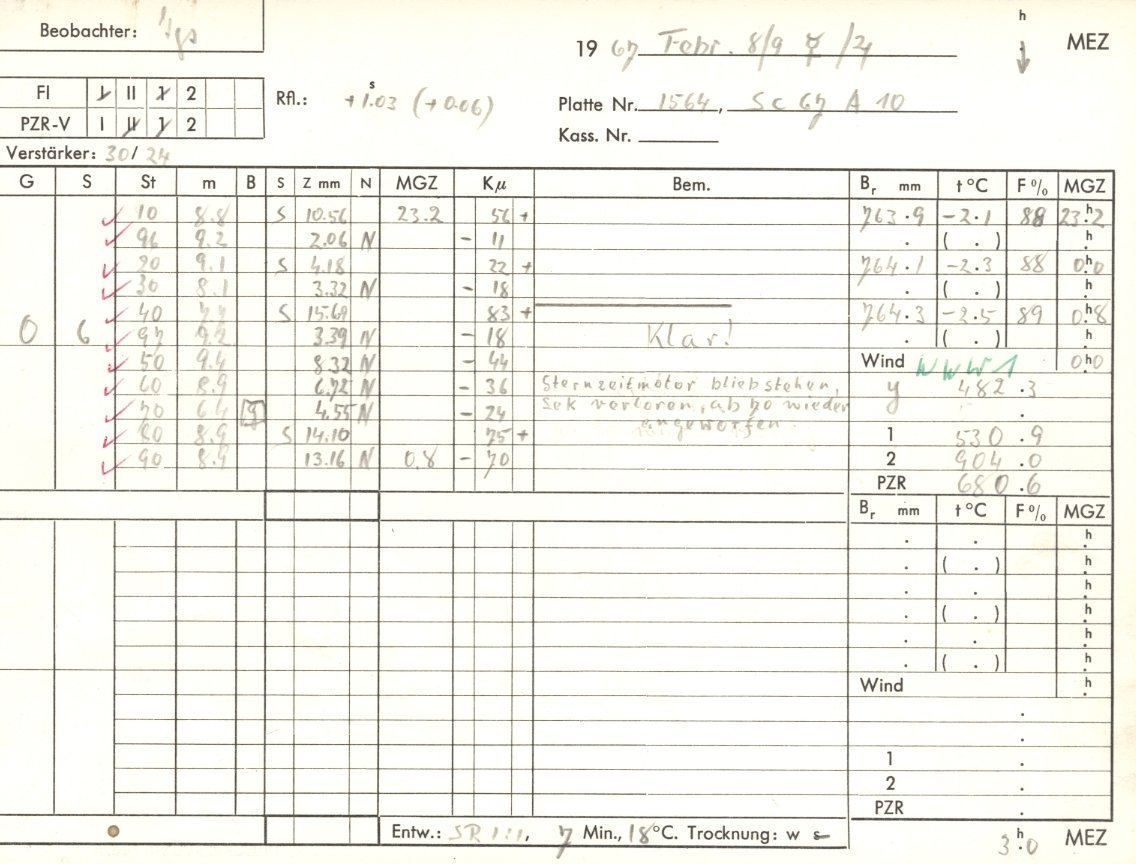 Beobachter:
h
19 67 Febr. 8/9 ☿ /♃ MEZ
FI I II 1 2
Rfl.: +1.03 (+0.06) s
Platte Nr. 1564, Sc 67 A 10
PZR-V I II 1 2
Kass. Nr.
Verstärker: 30/24
G S St m B S Z mm N MGZ Kμ Bem. Br mm t °C F % MGZ
10 8.8 S 10.56 23.2 56 + 763.9 -2.1 88 23.2 h
96 9.2 2.06 N - 11 . ( . ) h
20 9.1 S 4.18 22 + 764.1 -2.3 88 0.0 h
30 8.1 3.32 N - 18 . ( . ) h
40 7.7 S 15.69 83 + 764.3 -2.5 89 0.8 h
0 6 97 9.2 3.39 N - 18 Klar! . ( . ) h
50 9.4 8.32 N - 44 Wind WNW 1 0.0 h
60 8.9 6.72 N - 36 Sternzeitmotor blieb stehen, y 482.3
70 6.4 9 4.55 N - 24 Sek verloren, ab 70 wieder .
80 8.9 S 14.10 75 + angeworfen. 1 530.9
90 8.9 13.16 N 0.8 - 70 2 904.0
PZR 680.6
Br mm t °C F % MGZ
. . h
. ( . ) h
. . h
. ( . ) h
. . h
. ( . ) h
Wind h
.
.
1 .
2 .
PZR .
Entw.: SR 1:1, 7 Min., 18 °C. Trocknung: w s 3.0 h MEZ